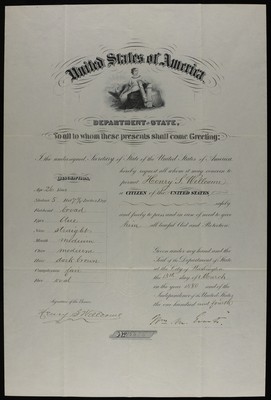 United States of America,
DEPARTMENT OF STATE,
To all to whom these presents shall come, Greeting:
I the undersigned Secretary of State of the United States of America
hereby request all whom it may concern to
permit Henry S. Wellcome
a CITIZEN OF THE UNITED STATES,
safely
and freely to pass and in case of need to give
him all lawful Aid and Protection
DESCRIPTION
Age 26 Years
Stature 5 Feet
Forehead broad
Eyes blue
Nose straight
Mouth medium
Chin medium
Hair dark brown
Complexion fair
Face oval
Signature of the Bearer
Henry S Wellcome
Given under my hand and the
Seal of the Department of State
at the City of Washington,
the day of March
in the year 1880 and of the
Independence of the United States
the one hundred and fourth
Wm M. Evarts